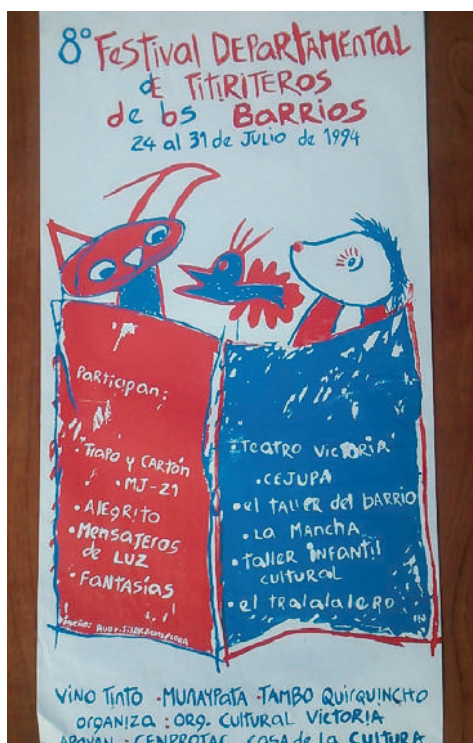 8º FESTIVAL DEPARTAMENTAL
de TITIRITEROS
de los BARRIOS
24 al 31 de JULIO de 1994
Participan:
• TRAPO y CARTÓN
• MJ-21
• ALEGRITO
• MENSAJEROS
de LUZ
• FANTASÍAS
• TEATRO VICTORIA
• CEJUPA
• el TALLER del BARRIO
• LA MANCHA
• TALLER INFANTIL
CULTURAL
• el TRALALALERO
VINO TINTO • MUNAYPATA • TAMBO QUIRQUINCHO
ORGANIZA : ORG. CULTURAL VICTORIA
APOYAN : CENPROTAC CASA de la CULTURA